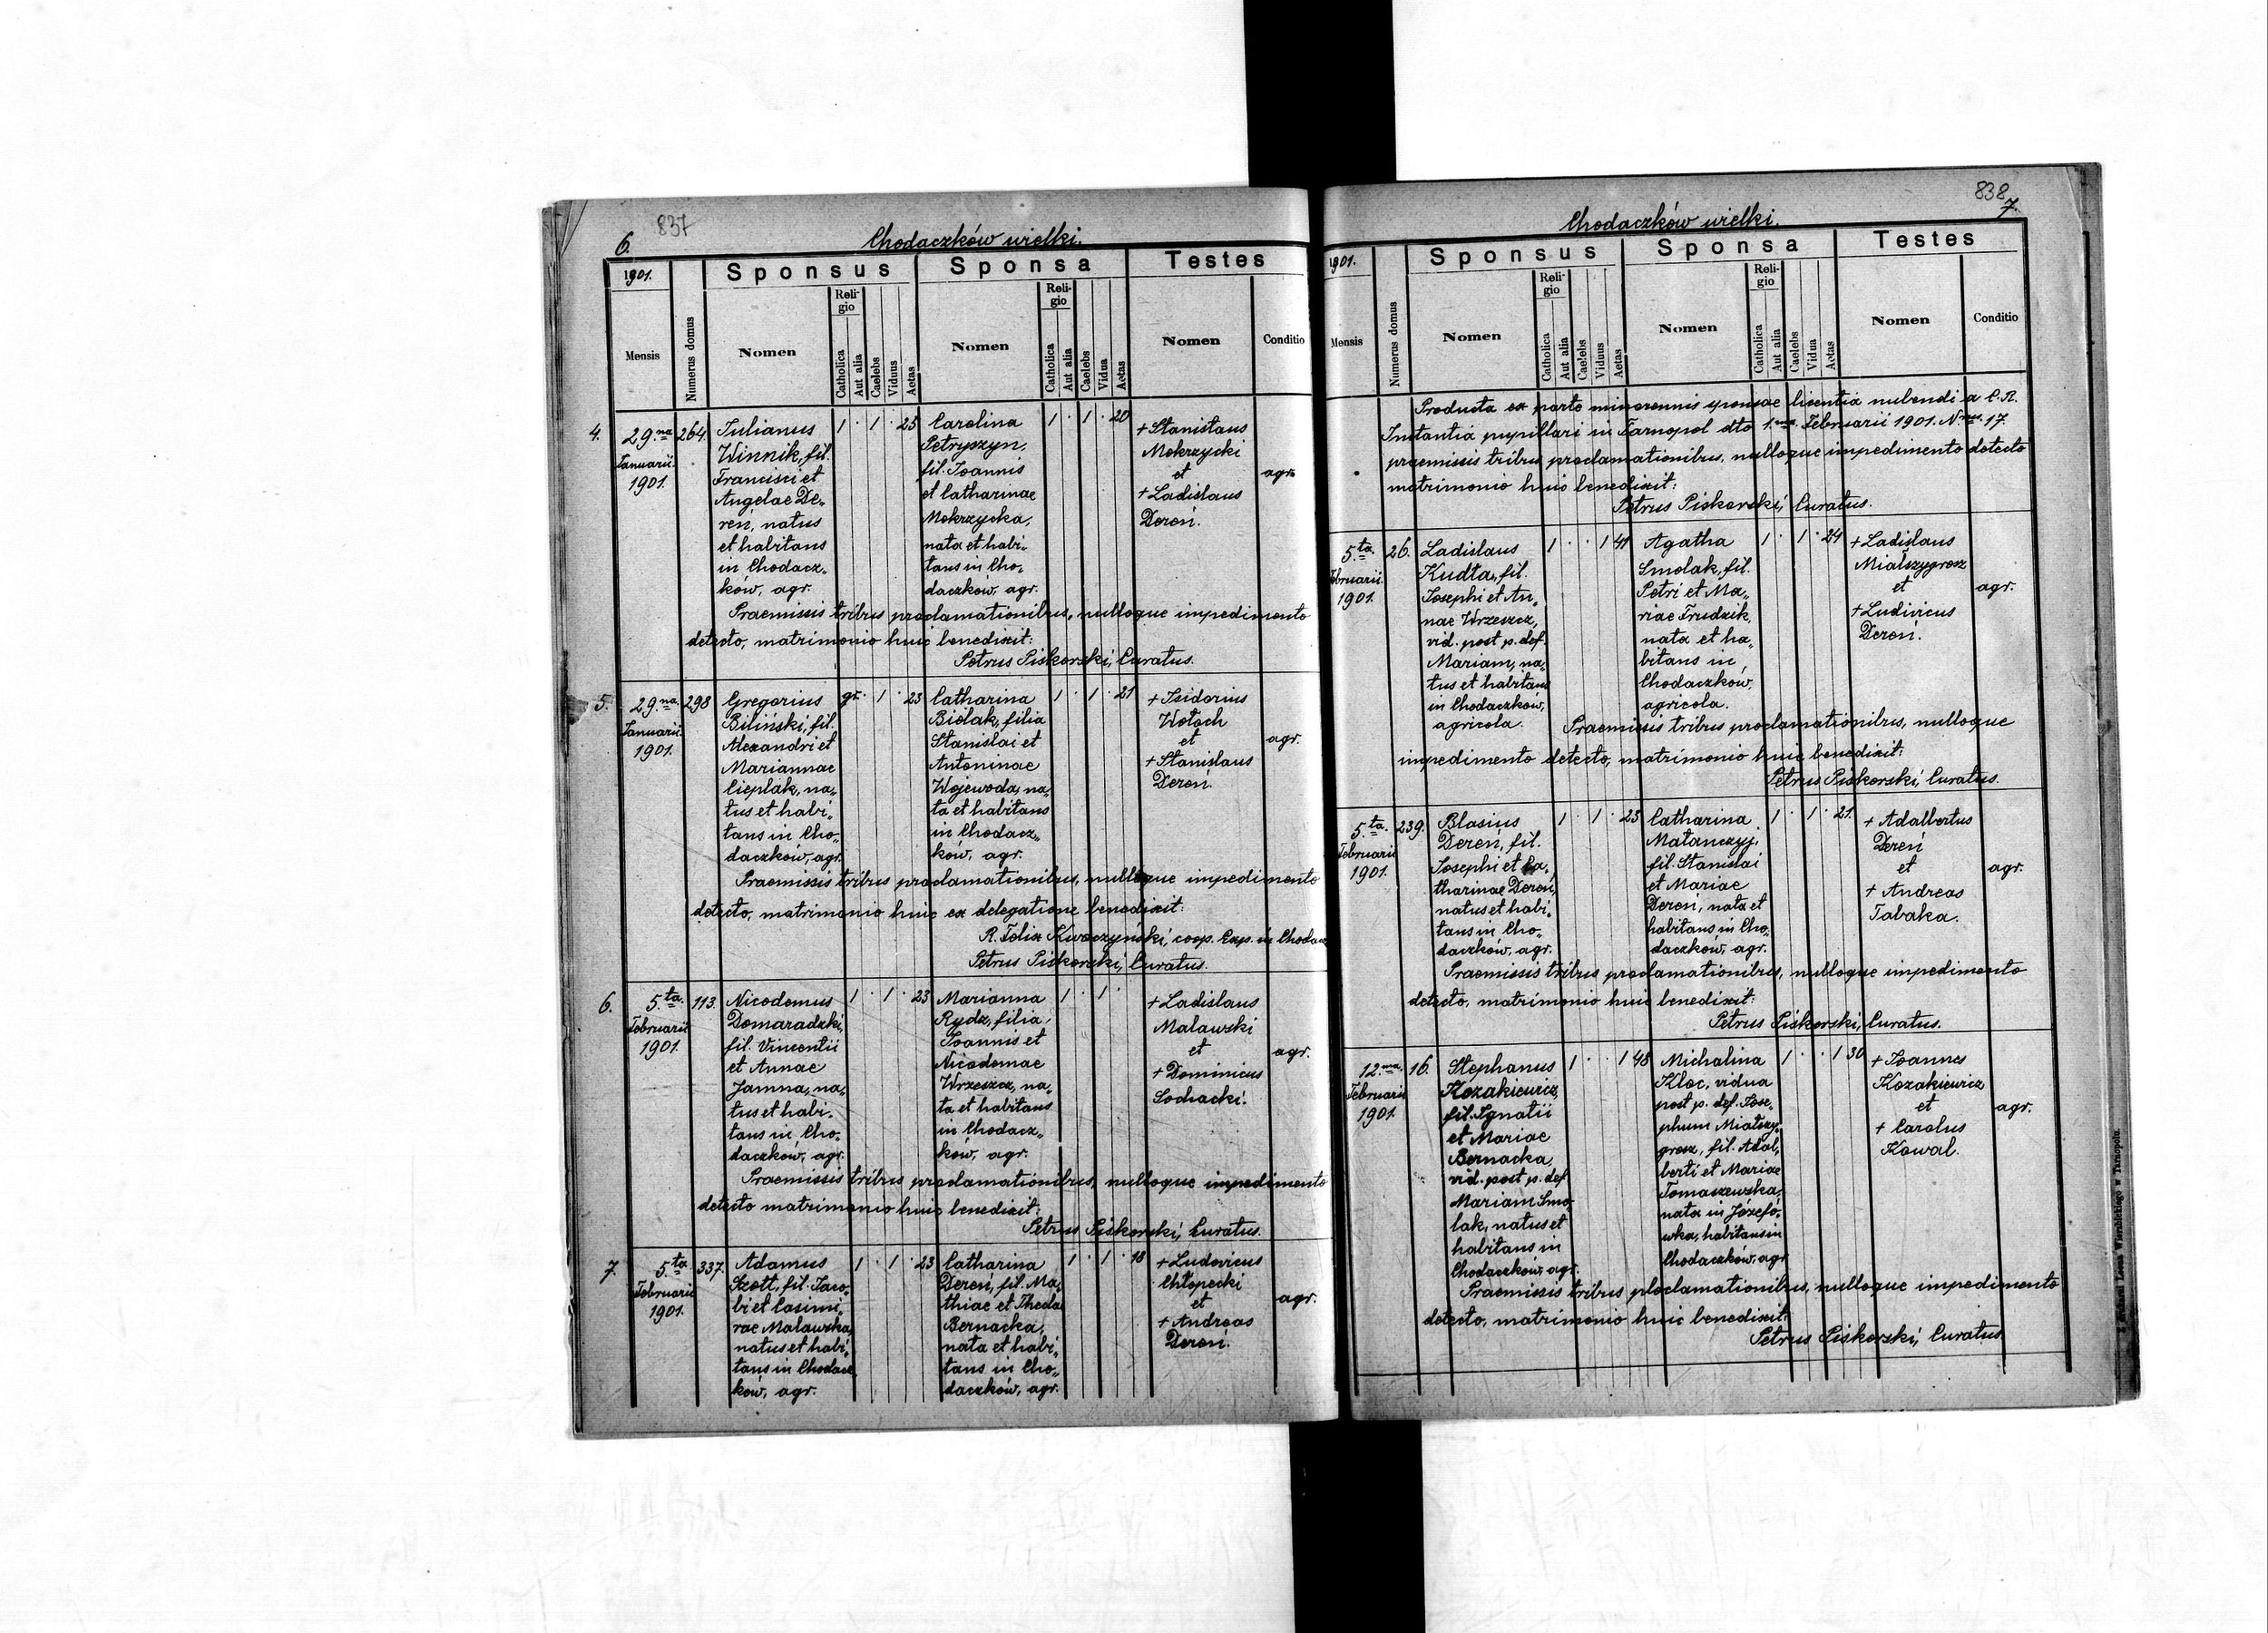 837
6.
Chodaczków wielki.
1901.
Sponsus
Sponsa
Testes
Mensis
Numerus domus
Nomen
Religio
Catholica
Aut alia
Caelebs
Viduus
Aetas
Nomen
Religio
Catholica
Aut alia
Caelebs
Vidua
Aetas
Nomen
Conditio
4.
29.na
Januarii
1901.
264.
Julianus
Winnik, fil.
Francisci et
Angelae De„
reń, natus
et habitans
in Chodacz„
ków, agr.
1 · 1 · 25
Carolina
Petryszyn,
fil. Joannis
et Catharinae
Mokrzycka,
nata et habi„
tans in Cho„
daczków, agr.
1 · 1 · 20
+ Stanislaus
Mokrzycki
et
+ Ladislaus
Dereń.
agr.
Praemissis tribus proclamationibus, nulloque impedimento
detecto, matrimonio huic benedixit:
Petrus Piskorski, Curatus.
5.
29.na
Januarii
1901.
298
Gregorius
Biliński, fil.
Alexandri et
Mariannae
Cieplak, na„
tus et habi„
tans in Cho„
daczków, agr.
gr. · 1 · 23
Catharina
Biólak, filia
Stanislai et
Antoninae
Wojewoda, na„
ta et habitans
in Chodacz„
ków, agr.
1 · 1 · 21
+ Isidorius
Wołoch
et
+ Stanislaus
Dereń.
agr.
Praemissis tribus proclamationibus, nulloque impedimento
detecto, matrimonio huic ex delegatione benedixit:
R. Felix Kwaczyński, coop. Exp. in Chodacz
Petrus Piskorski, Curatus.
6.
5.ta
Februarii
1901.
113.
Nicodemus
Domaradzki,
fil. Vincentii
et Annae
Jamna, na„
tus et habi„
tans in Cho„
daczków, agr.
1 · 1 · 23
Marianna
Rydz, filia
Joannis et
Nicodemae
Wrzeszcz, na„
ta et habitans
in Chodacz„
ków, agr.
1 · 1 ·
+ Ladislaus
Malawski
et
+ Dominicus
Sochacki.
agr.
Praemissis tribus proclamationibus, nulloque impedimento
detecto matrimonio huic benedixit:
Petrus Piskorski, Curatus.
7.
5.ta
Februarii
1901.
337.
Adamus
Szott, fil. Jaco„
bi et Casimi„
rae Malawska,
natus et habi„
tans in Chodacz
ków, agr.
1 · 1 · 23
Catharina
Dereń, fil. Ma„
thiae et Theclae
Bernacka,
nata et habi„
tans in Cho„
daczków, agr.
1 · 1 · 18
+ Ludovicus
Chłopecki
et
+ Andreas
Dereń.
agr.
838
7.
Chodaczków wielki.
1901.
Sponsus
Sponsa
Testes
Mensis
Numerus domus
Nomen
Religio
Catholica
Aut alia
Caelebs
Viduus
Aetas
Nomen
Religio
Catholica
Aut alia
Caelebs
Vidua
Aetas
Nomen
Conditio
Producta ex parte minorennis sponsae licentia nubendi a C. R.
Instantia pupillari in Tarnopol dto 1.ma Februarii 1901. N.rus 17.
praemissis tribus proclamationibus, nulloque impedimento detecto
matrimonio huic benedixit:
Petrus Piskorski, Curatus.
5.ta
Februarii
1901.
26.
Ladislaus
Kudła, fil.
Josephi et An„
nae Wrzeszcz,
vid. post p. def.
Mariam, na„
tus et habitans
in Chodaczków,
agricola.
1 · · 1 41
Agatha
Smolak, fil.
Petri et Ma„
riae Trudzik,
nata et ha„
bitans in
Chodaczków,
agricola.
1 · 1 · 24
+ Ladislaus
Miałszygrosz
et
+ Ludivicus
Dereń.
agr.
Praemissis tribus proclamationibus, nulloque
impedimento detecto, matrimonio huic benedixit:
Petrus Piskorski, Curatus.
5.ta
Februarii
1901.
239.
Blasius
Dereń, fil.
Josephi et Ca„
tharinae Dereń,
natus et habi„
tans in Cho„
daczków, agr.
1 · 1 · 25
Catharina
Matanczyj,
fil. Stanislai
et Mariae
Dereń, nata et
habitans in Cho„
daczków, agr.
1 · 1 · 21.
+ Adalbertus
Dereń
et
+ Andreas
Tabaka.
agr.
Praemissis tribus proclamationibus, nulloque impedimento
detecto, matrimonio huic benedixit:
Petrus Piskorski, Curatus.
12.ma
Februarii
1901.
16.
Stephanus
Kozakiewicz,
fil. Ignatii
et Mariae
Bernacka,
vid. post p. def.
Mariam Smo„
lak, natus et
habitans in
Chodaczków, agr.
1 · · 1 48
Michalina
Kloc, vidua
post p. def. Jose„
phum Miałszy„
grosz, fil. Adal„
berti et Mariae
Tomaszewska,
nata in Józefó„
wka, habitans in
Chodaczków, agr
1 · · 1 30
+ Joannes
Kozakiewicz
et
+ Carolus
Kowal.
agr.
Praemissis tribus ploclamationibus, nulloque impedimento
detecto, matrimonio huic benedixit:
Petrus Piskorski, Curatus
Z drukarni Leona Wierzbickiego w Tarnopolu.